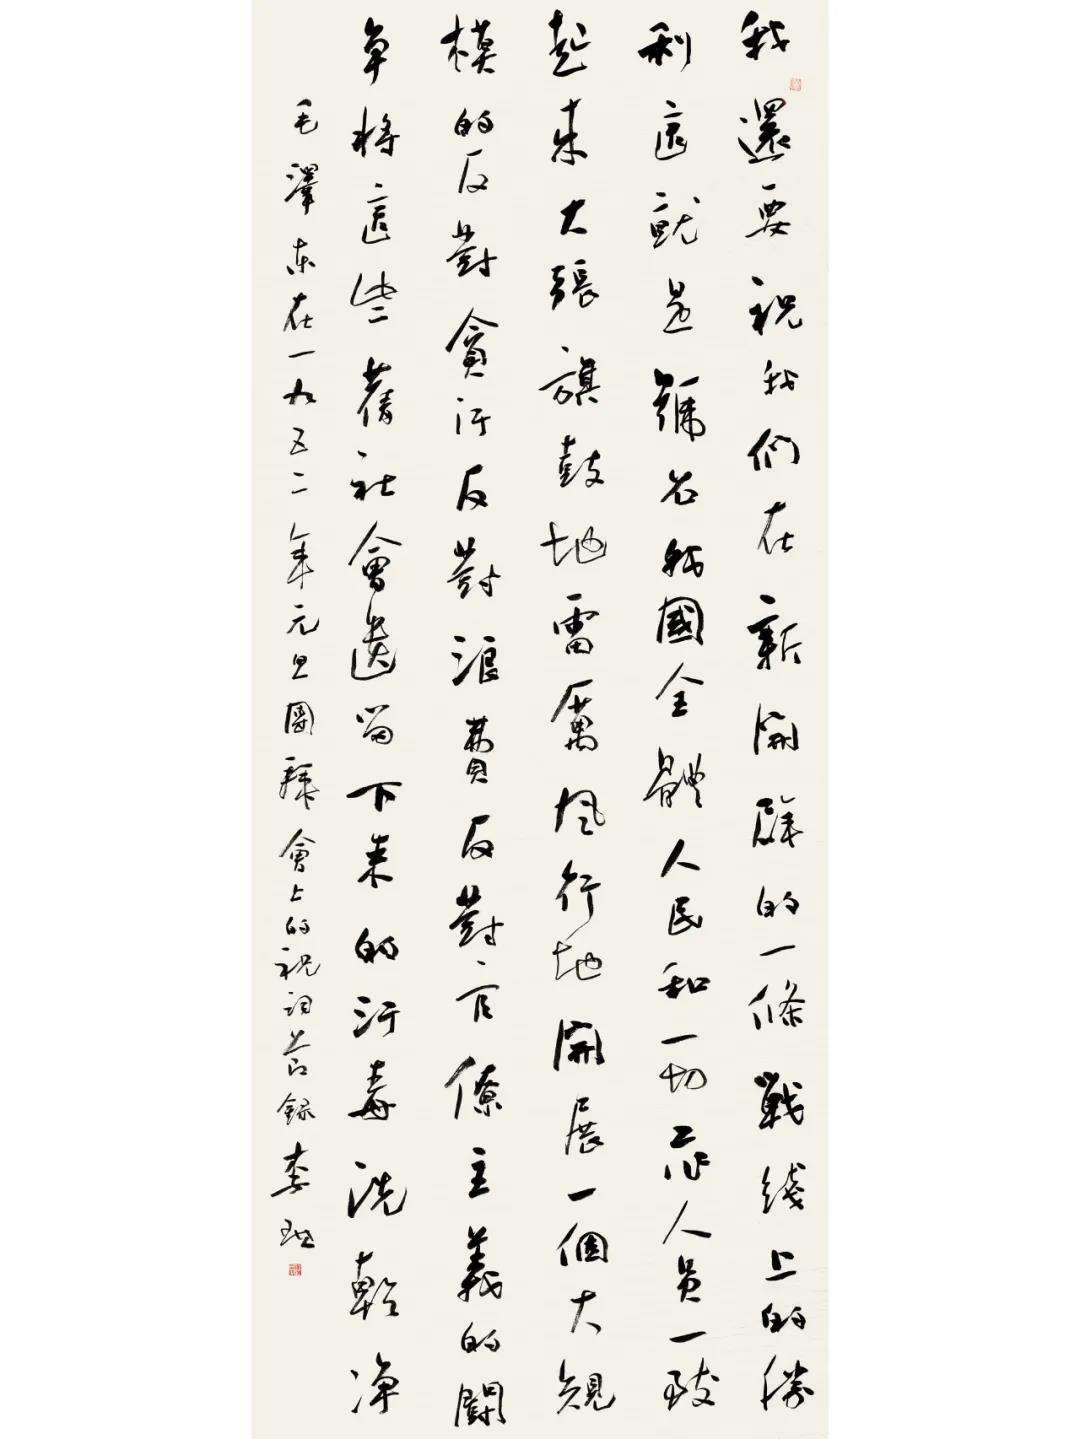 我還要祝我們在新開闢的一條戰綫上的勝
利這就是號召我國全體人民和一切工作人員一致
起来大張旗鼓地雷厲風行地開展一個大規
模的反對貪污反對浪費反對官僚主義的鬭
争將這些舊社會遺留下来的污毒洗乾净
毛澤東在一九五二年元旦團拜會上的祝詞節録李